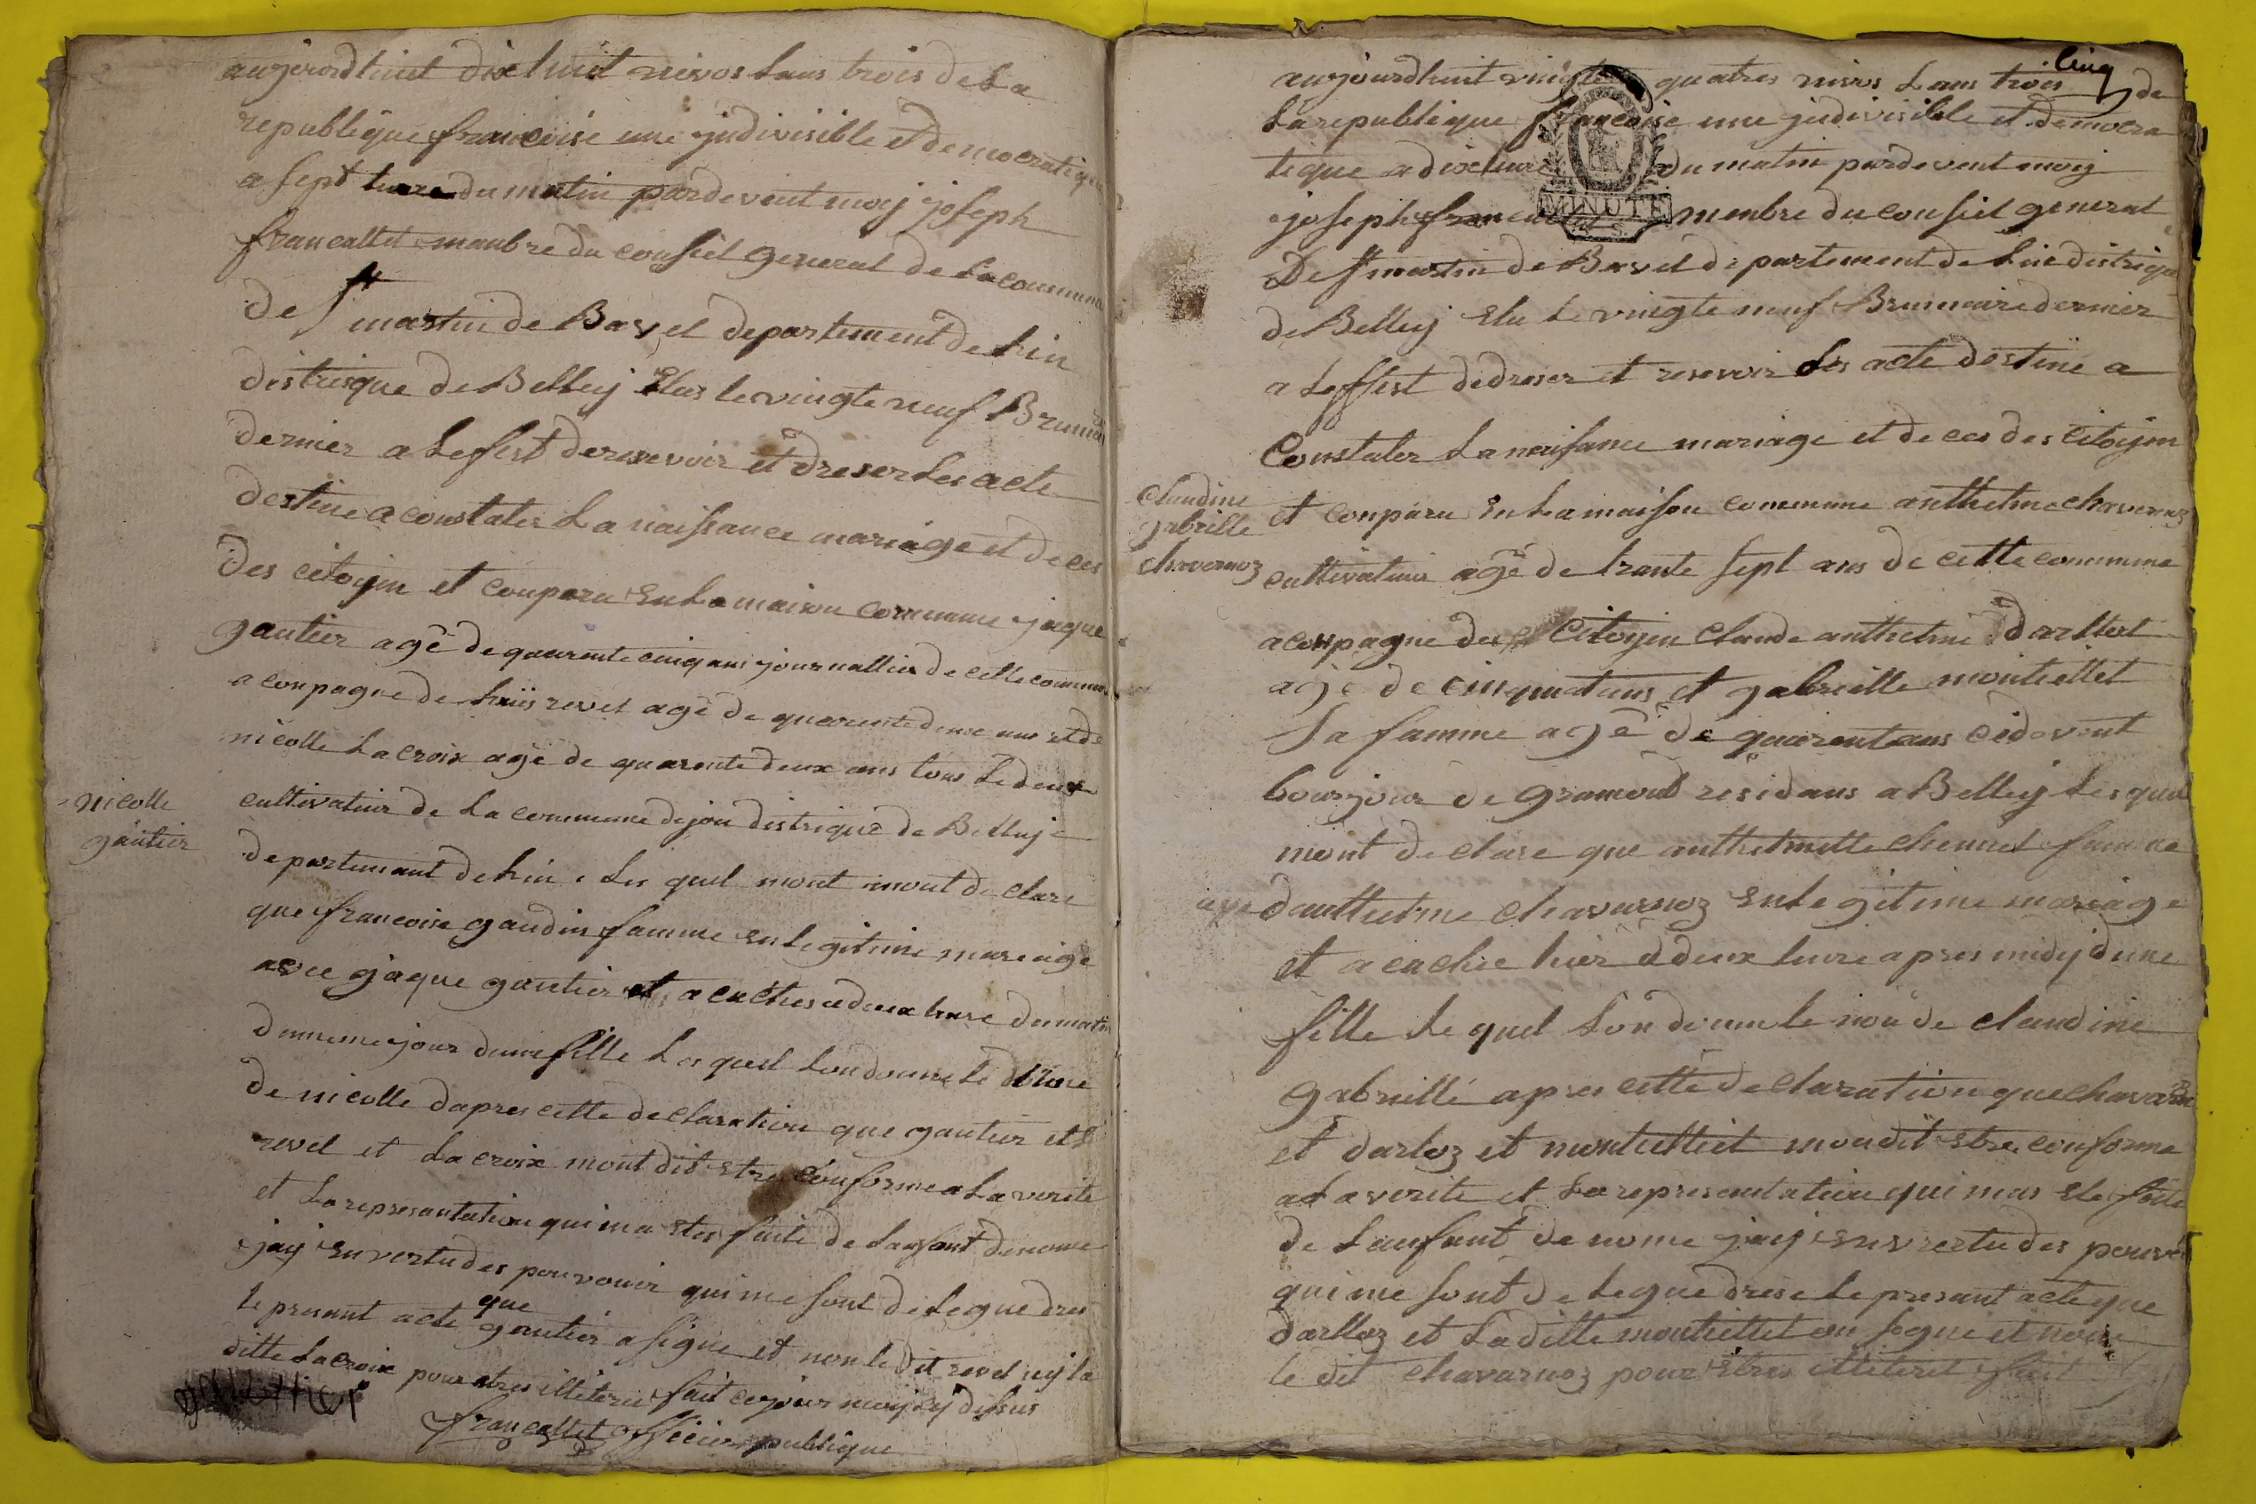 aujourdhuit dixhuit nivos lans trois de La
republique francoise une jndivisible et democratique
a sept heure du matin pardevent moij joseph
francallet manbre du consiel general de La commune
de st martin de Bavet departement de Lin
distrique de Belleij Elus le vingte neuf Brumair
dernier a Leffest de resevoir et dreser Les acte
destine a constater La naissance mariage et de ces
des citoijen et conparu en La maison commune jaque
gautier agé de quarente cinq ans journallier de cette commune
a conpagne de Louis revel agé de quarente deux ans et de
nicolle La croix agé de quarente deux ans tous Le deux
nicolle
gautier
cultivateur de La commune dejou distrique de Belleij
departemant de Lin . Les quel mont mont declare
que francoise gaudin famme en legitime mareiage
avec jaque gautier et a cuches a deux heure du matin
dumeme jour dune fille Les quel Lon donne Le
de nicolle dapres cette declaration que gautier et
revel et Lacroix mont dit Etre conforme a La verite
et La represantation qui ma Etes faite de Lanfant denome
jaij en vertu des pouvouir qui me sont de Legue dres
le presant acte que gautier a signe et non le dit revel nij la
ditte Lacroix pour etres illiterée fait ce jour moij cij desus
gauttier
francallet officier publique
cinq
aujourdhuit vingte quatres nivos Lans trois de
La republique francoise une jndivisible et democra
tique a dix heure du matin pardevent moij
MINUTE
joseph francallet menbre du consiel general
De st martin de Bavet departement de Lin distrique
de Belleij Elu Le vingte neuf Brummaire dernier
a Leffest de dreser et resevoir Les acte destine a
Constater La naissance mariage et de ces des citoijen
Claudine
gabrille
chavernoz
et conparu en La maison commune anthelme chavernoz
cultivateur agé de trante sept ans de cette commune
aconpagne des citoijen claude anthelme darlloz
agé de cinquatans et gabrielle montiellet
sa famme agé de quarentans cidevent
bourjour de gramond residans a Belleij Les quel
mont declare que anthelmette chennel famme
danthelme chavarnoz en Legitime mariage
et a cuchée hier a deux heure apres midij dune
fille Le quel Lon donne le nou de claudine
gabrille apres cette declaration que chavarnoz
et darloz et montielliet mondit Etre conforme
a La verite et La represantation qui mas Ete faite
de Lanfant de nome jaij en vertu des pouvoir
qui me sont de Legue drese Le presant acte que
darlloz et La ditte montiellet on signe et non
le dit chavarnoz pour Etres illiteret fait